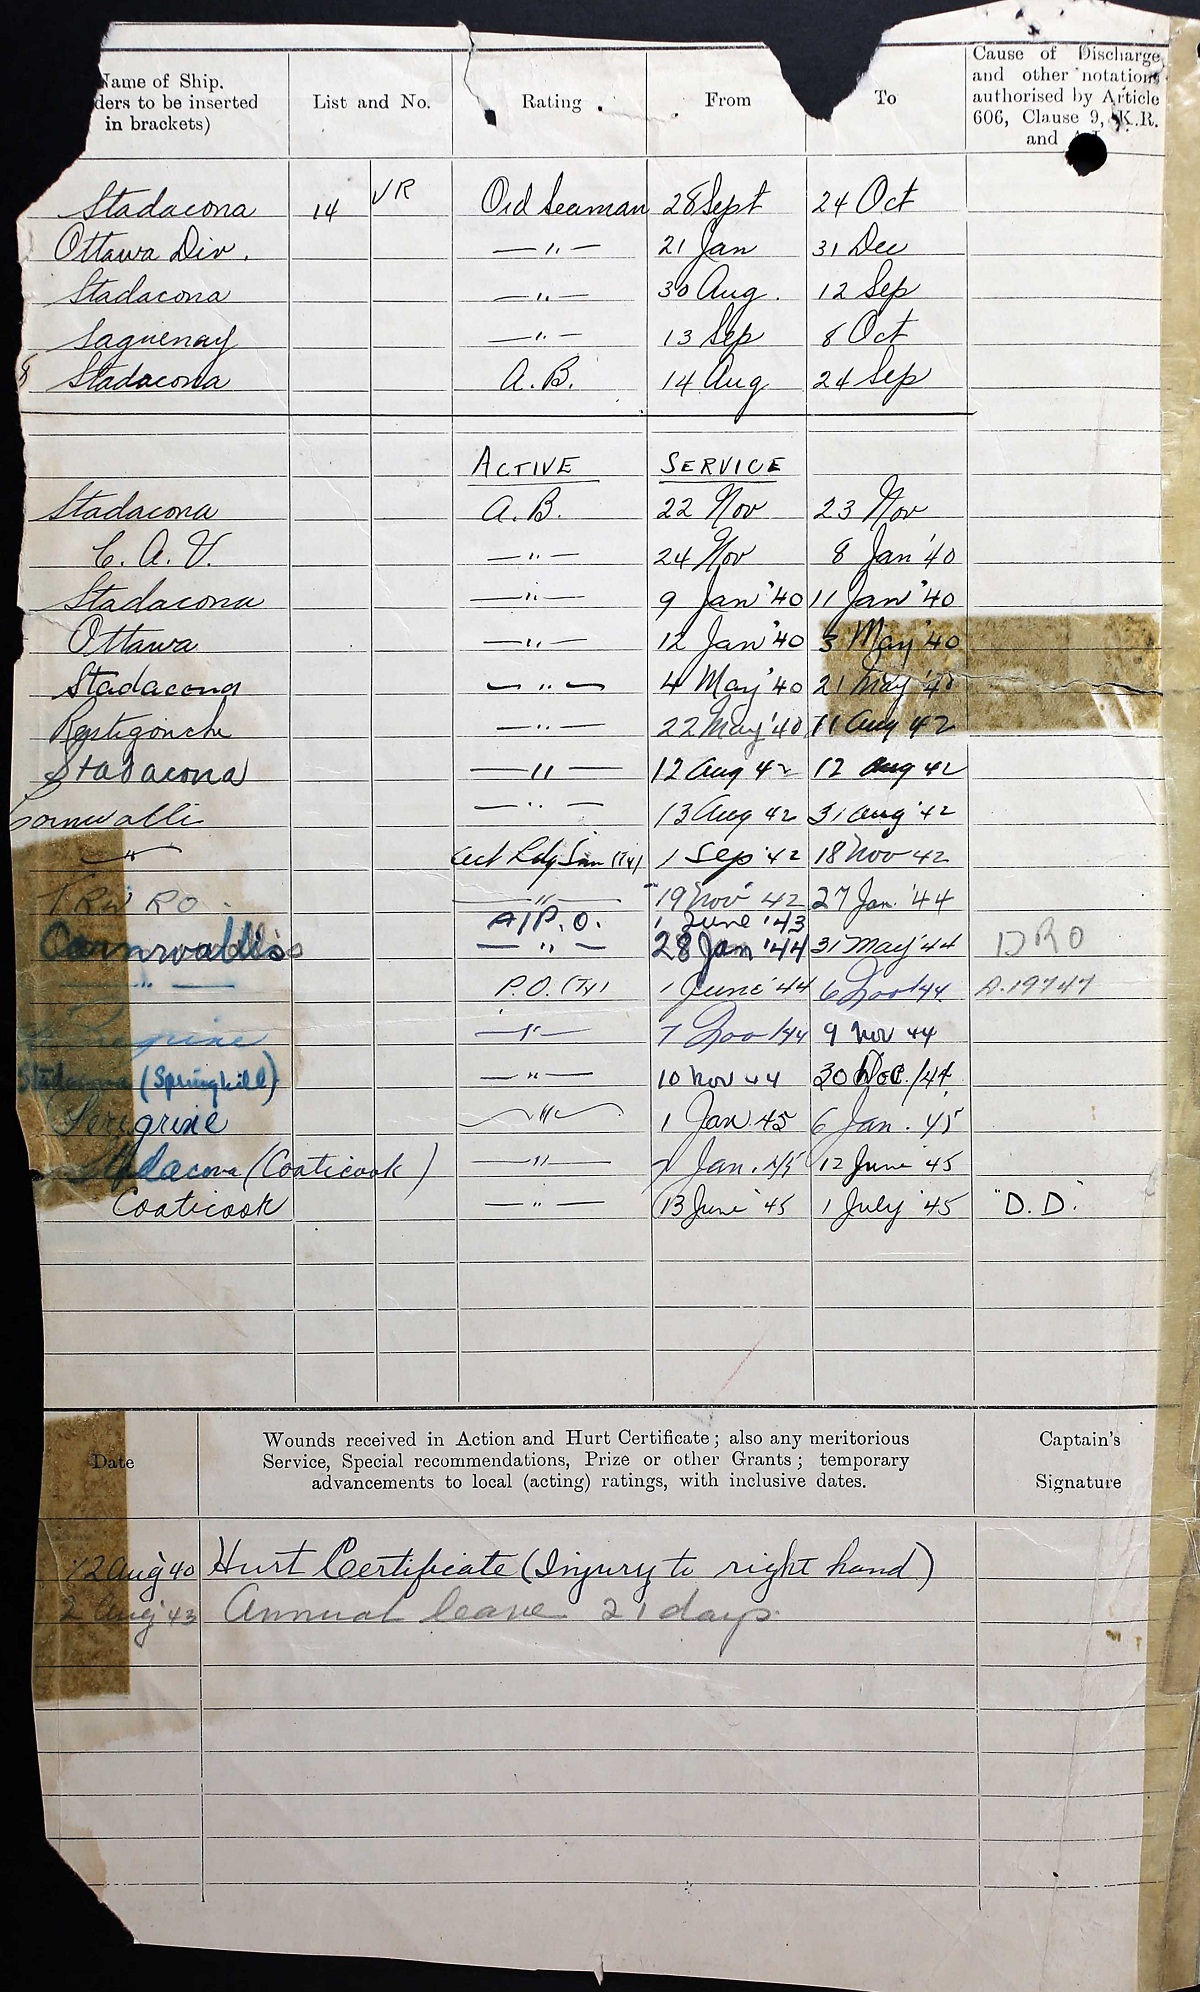 Name of Ship. List and No. Rating From To Cause of Discharge
ders to be inserted and other notations
in brackets) authorised by Article
606, Clause 9, K.R.
and
Stadacona 14 VR Ord Seaman 28 Sept 24 Oct
Ottawa Div. —"— 21 Jan 31 Dec
Stadacona —"— 30 Aug. 12 Sep
Saguenay —"— 13 Sep 8 Oct
Stadacona A.B. 14 Aug 24 Sep
ACTIVE SERVICE
Stadacona A.B. 22 Nov 23 Nov
C.A.V. —"— 24 Nov 8 Jan '40
Stadacona —"— 9 Jan '40 11 Jan '40
Ottawa —"— 12 Jan '40 3 May '40
Stadacona —"— 4 May '40 21 May '40
Restigouche —"— 22 May '40 11 Aug 42
Stadacona —"— 12 Aug 42 12 Aug 42
Cornwallis —"— 13 Aug 42 31 Aug '42
—"— Act Ldg Smn (Ty) 1 Sep '42 18 Nov 42
—"— 19 Nov 42 27 Jan '44
A/P.O. 1 June '43
Cornwallis —"— 28 Jan '44 31 May '44 DRO
—"— P.O. (Ty) 1 June '44 6 Nov/44 A.19747
Peregrine —"— 7 Nov/44 9 Nov 44
Stadacona (Springhill) —"— 10 Nov 44 30 Dec./44
Peregrine —"— 1 Jan 45 6 Jan. 45
Stadacona (Coaticook) —"— 7 Jan. 45 12 June '45
Coaticook —"— 13 June '45 1 July '45 "D.D."
Date Wounds received in Action and Hurt Certificate; also any meritorious Captain's
Service, Special recommendations, Prize or other Grants; temporary
advancements to local (acting) ratings, with inclusive dates. Signature
12 Aug 40 Hurt Certificate (Injury to right hand)
2 Aug '43 Annual leave 21 days.